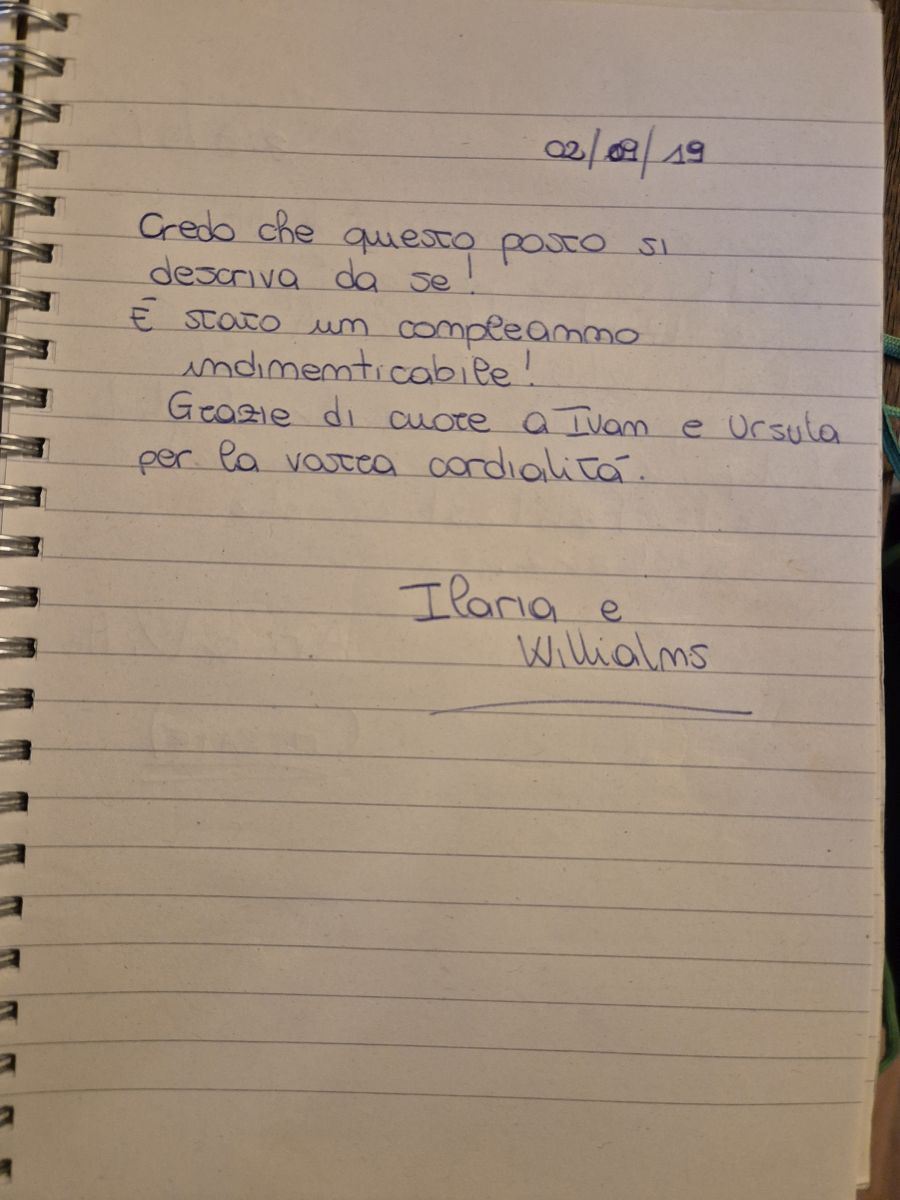 02/09/19
Credo che questo posto si
descriva da se!
É stato un compleanno
indimenticabile!
Grazie di cuore a Ivan e Ursula
per la vostra cordialitá.
Ilaria e
Willialms